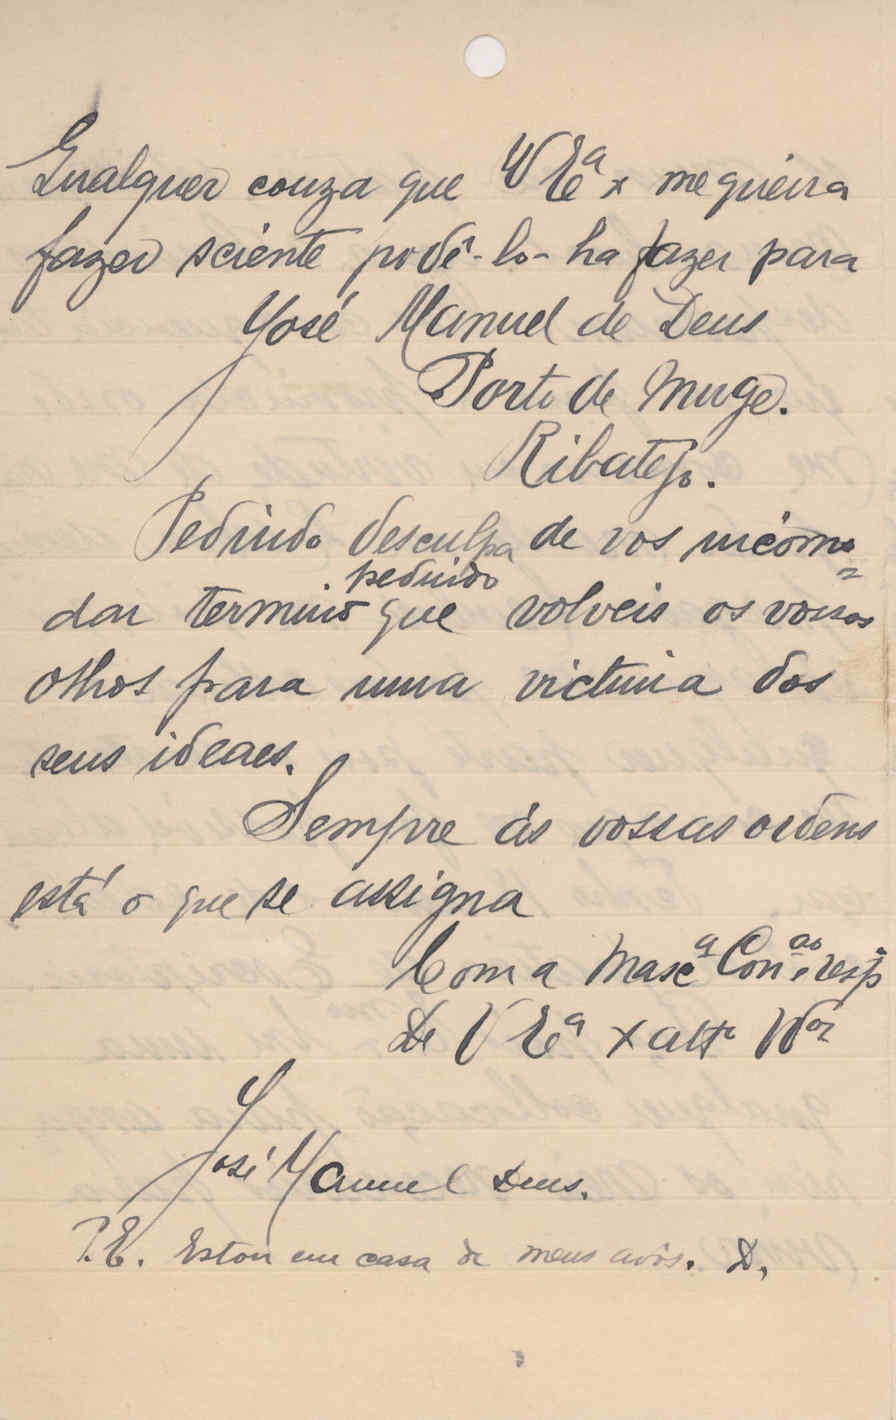 Qualquer couza que V Eª x me queira
fazer sciente podê-lo-ha fazer para
José Manuel de Deus
Porto de Muge.
Ribatejo.
Pedindo desculpa de vos incómo=
dar termino pedindo que volveis os vossos
olhos para uma victima dos
seus ideaes.
Sempre ás vossas ordens
está o que se assigna
Com a maxª Con.ªº resp
De V Eª x attº Vºr
José Manuel Deus.
P.E. Estou em casa de meus avós. D.